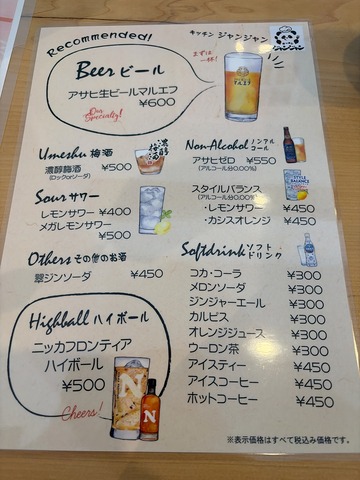 Recommended!
キッチン ジャンジャン
まずは一杯!
Beer ビール
アサヒ生ビールマルエフ
¥600
Our Specialty!
Umeshu 梅酒
濃醇梅酒 ¥500
(ロックorソーダ)
Sour サワー
レモンサワー ¥400
メガレモンサワー
¥500
Others その他のお酒
翠ジンソーダ ¥450
Highball ハイボール
ニッカフロンティア
ハイボール
¥500
Cheers!
Non-Alcohol ノンアルコール
アサヒゼロ ¥550
(アルコール分0.00%)
スタイルバランス
(アルコール分0.00%)
・レモンサワー ¥450
・カシスオレンジ ¥450
Softdrink ソフトドリンク
コカ・コーラ ¥300
メロンソーダ ¥300
ジンジャーエール ¥300
カルピス ¥300
オレンジジュース ¥300
ウーロン茶 ¥300
アイスティー ¥450
アイスコーヒー ¥450
ホットコーヒー ¥450
※表示価格はすべて税込み価格です。